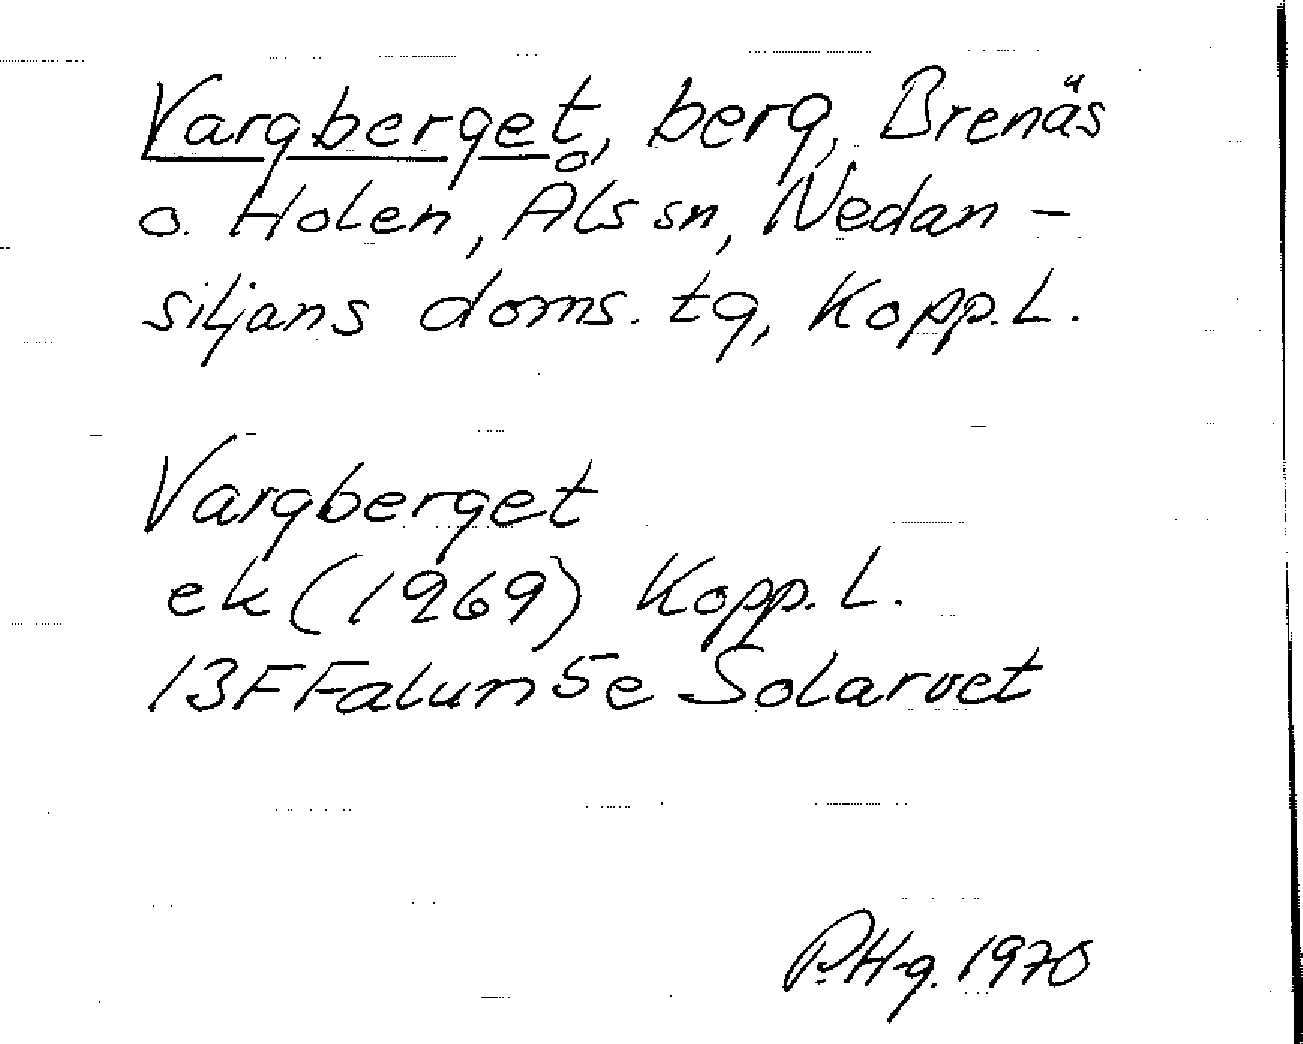 Vargberget, berg, Brenäs
o. Holen, Åls sn, Nedan-
siljans doms. tg, Kopp. L.
Vargberget
ek (1969) Kopp. L.
13F Falun 5e Solarvet
P. H-g. 1970